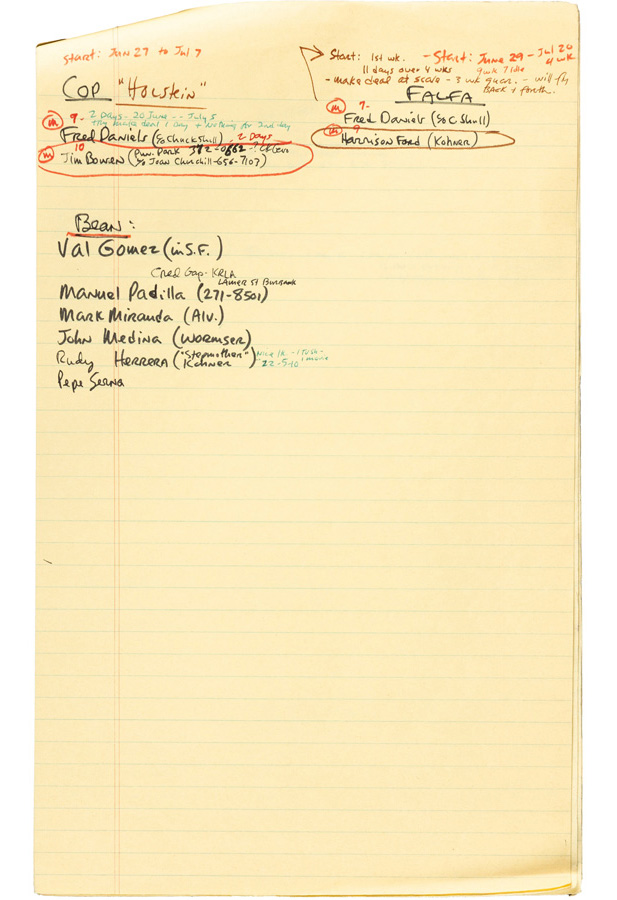 Start: Jun 27 to Jul 7
COP "Holstein"
m 9 - 2 Days - 20 June - - July 5
Try make deal 1 day + nothing for 2nd day
Fred Daniels (c/o Chuck Shull) - 2 Days
m 10
Jim Bowen (Pnv. Park 372-0662 -
c/o Joan Churchill - 656-7107)
Start: 1st wk. - Start: June 29 - Jul 26
11 days over 4 wks 4 wk
- make deal at scale - 3 wk guar. - will fly
back + forth.
FALFA
m 7-
Fred Daniels (c/o C Shull)
m 9
Harrison Ford (Kohner)
Bean:
Val Gomez (in S.F.)
Cred Gap - KRLA
Lamer St Burbank
Manuel Padilla (271-8501)
Mark Miranda (Alv.)
John Medina (Wormser)
Rudy Herrera ("Stepmother" Kohner)
22 - 5-10
Pepe Serna